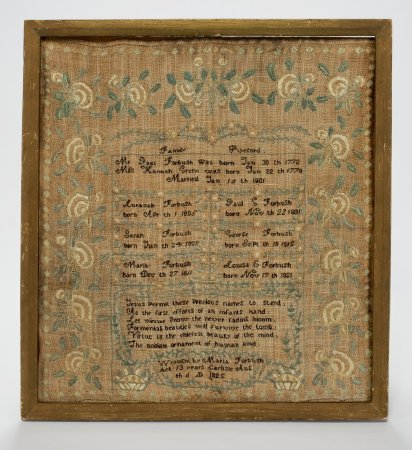 Family Record
Mr Paul Forbush was born Jan 30 th 1772
Mrs Hannah Green was born Jan 22 th 1772
Married Jan 1 st 1801
Lusanah Forbush Paul G Forbush
born Apr th 1 1805 born Nov th 22 1801
Sarah Forbush George Forbush
born Jun th 24 1807 born Sept th 10 1815
Maria Forbush Louisa E Forbush
born Dec th 27 1811 born Nov 19 th 1821
these Precious names to stand
As the first efforts of an infants hand
Let Prone the never fading bloom
beauties will survive the tomb
Virtue is the chiefest beauty of the mind
The noblest ornament of human kind
Wrought by Maria Forbush
Aet 13 years Carlisle Aug
th AD 1825